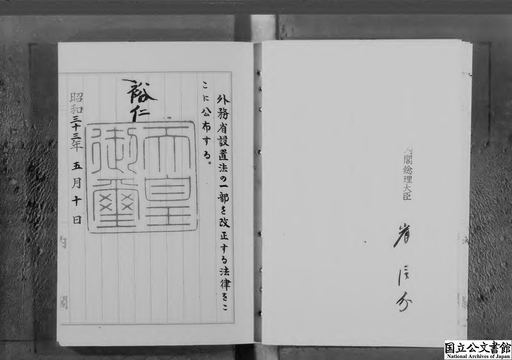 外務省設置法の一部を改正する法律をこ
こに公布する。
裕仁
天皇
御璽
昭和三十三年五月十日
内閣
内閣総理大臣
岸信介
国立公文書館
National Archives of Japan